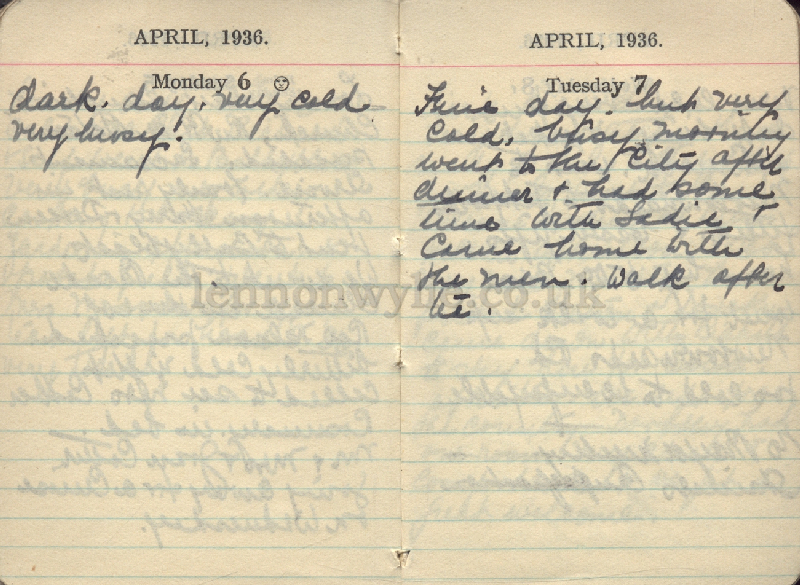 APRIL, 1936.
Monday 6
dark. day. very cold
very busy.
APRIL, 1936.
Tuesday 7
Fine day. but very
Cold. busy morning
went to the City after
dinner + had some
time with Sadie +
Came home with
the men. Walk after
te.
lennonwylie.co.uk